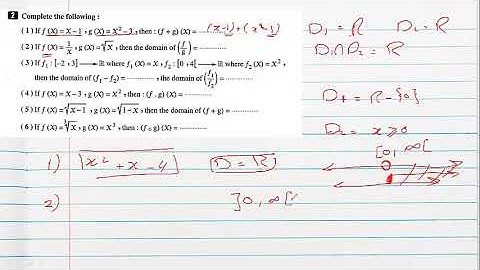 2 Complete the following :
( 1 ) If f (X) = X – 1 , g (X) = X² – 3 , then : (f + g) (X) = (x-1)+(x²-3)
( 2 ) If f (X) = 1/X , g (X) = √X , then the domain of (f/g) = ..............
( 3 ) If f₁ : [–2 , 3] → ℝ where f₁ (X) = X , f₂ : [0 , 4[ → ℝ where f₂ (X) = X² ,
then the domain of (f₁ – f₂) = .............. , the domain of (f₁/f₂) = ..............
( 4 ) If f (X) = X – 3 , g (X) = X² , then : (f . g) (X) = ..............
( 5 ) If f (X) = √X – 1 , g (X) = √1 – X , then the domain of (f + g) = ..............
( 6 ) If f (X) = ∛X , g (X) = X² , then : (f . g) (X) = ..............
D₁ = R D₂ = R
D₁∩D₂ = R
D₁ = R - {0}
D₂ = x ≥ 0
[0, ∞[
1) x² + x - 4 D = R
2) ]0, ∞[